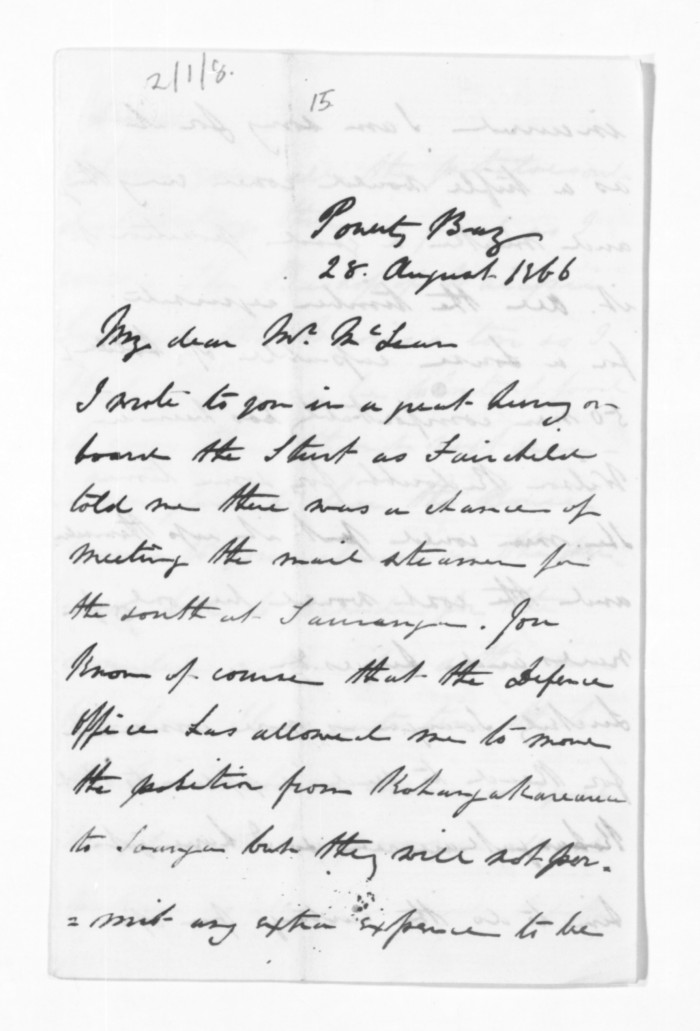 2/1/8.
15
Poverty Bay
28. August 1866
My dear Mr. McLean
I wrote to you in a great hurry on
board the Sturt as Fairchild
told me there was a chance of
meeting the mail steamer for
the south at Tauranga. You
know of course that the Defence
Office has allowed me to move
the position from Kohangakareare
to Turanga but they will not per-
=mit any extra expence to be